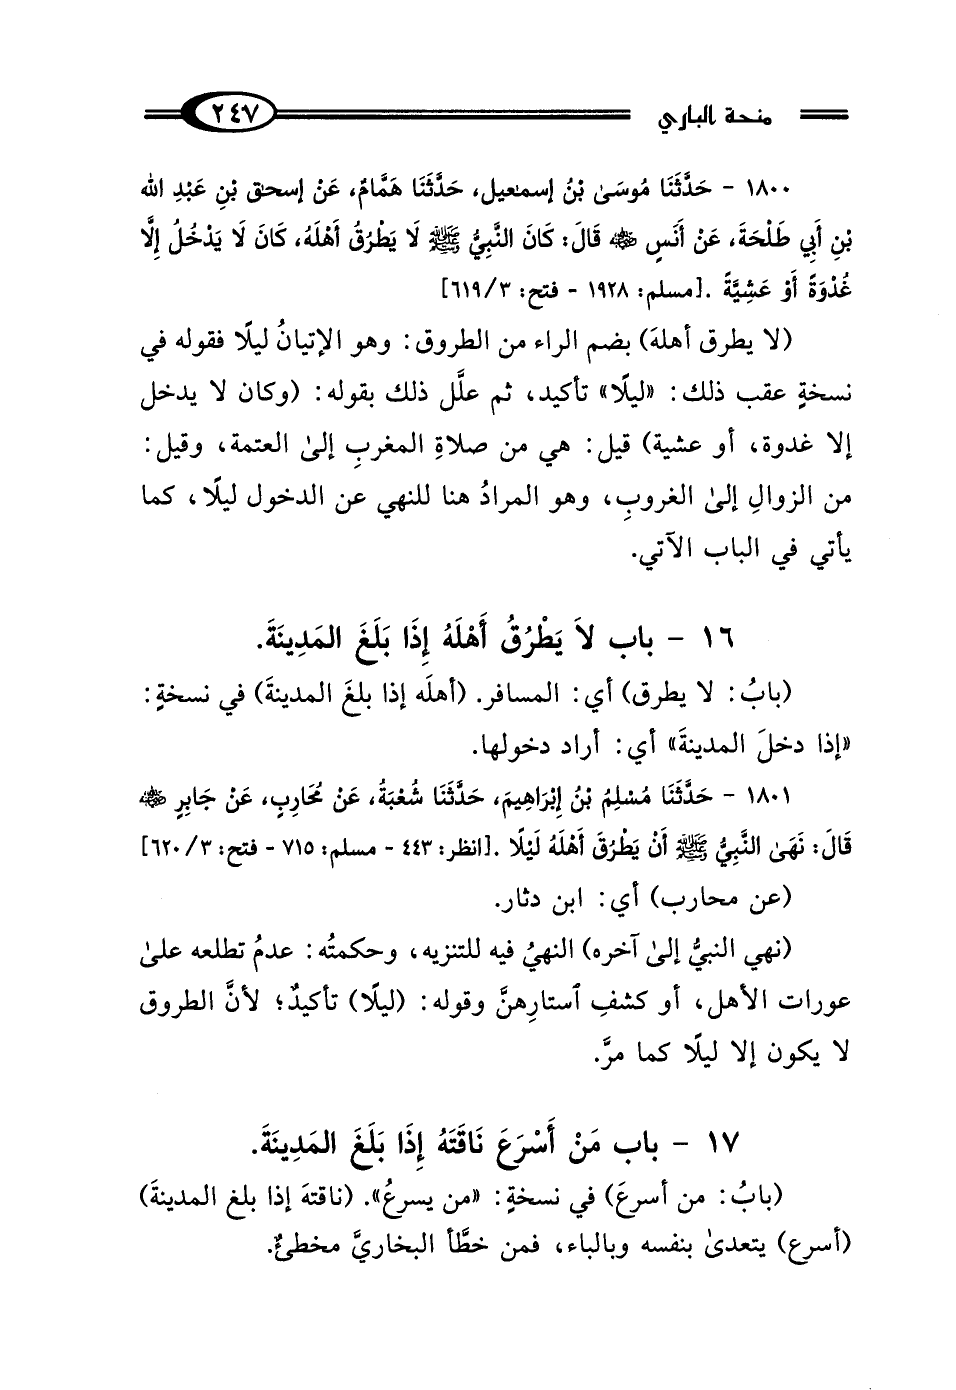 منحة الباري ٢٤٧
١٨٠٠ - حَدَّثَنَا مُوسَىٰ بْنُ إسمٰعيل، حَدَّثَنَا هَمَّامٌ، عَنْ إسحٰق بْنِ عَبْدِ الله
بْنِ أَبِي طَلْحَةَ، عَنْ أَنَسٍ رضي الله عنه قَالَ: كَانَ النَّبِيُّ ﷺ لَا يَطْرُقُ أَهْلَهُ، كَانَ لَا يَدْخُلُ إِلَّا
غُدْوَةً أَوْ عَشِيَّةً .[مسلم: ١٩٢٨ - فتح: ٣/٦١٩]
(لا يطرق أهلهَ) بضم الراء من الطروق: وهو الإتيانُ ليلًا فقوله في
نسخةٍ عقب ذلك: «ليلًا» تأكيد، ثم علَّل ذلك بقوله: (وكان لا يدخل
إلا غدوة، أو عشية) قيل: هي من صلاةِ المغربِ إلىٰ العتمة، وقيل:
من الزوالِ إلىٰ الغروبِ، وهو المرادُ هنا للنهي عن الدخول ليلًا، كما
يأتي في الباب الآتي.
١٦ - باب لاَ يَطْرُقُ أَهْلَهُ إِذَا بَلَغَ المَدِينَةَ.
(بابُ: لا يطرق) أي: المسافر. (أهلَه إذا بلغَ المدينةَ) في نسخةٍ:
«إذا دخلَ المدينةَ» أي: أراد دخولها.
١٨٠١ - حَدَّثَنَا مُسْلِمُ بْنُ إِبْرَاهِيمَ، حَدَّثَنَا شُعْبَةُ، عَنْ مُحَارِبٍ، عَنْ جَابِرٍ رضي الله عنه
قَالَ: نَهَىٰ النَّبِيُّ ﷺ أَنْ يَطْرُقَ أَهْلَهُ لَيْلًا .[انظر: ٤٤٣ - مسلم: ٧١٥ - فتح: ٣/٦٢٠]
(عن محارب) أي: ابن دثار.
(نهي النبيُّ إلىٰ آخره) النهيُ فيه للتنزيه، وحكمتُه: عدمُ تطلعه علىٰ
عورات الأهل، أو كشفِ ٱستارِهنَّ وقوله: (ليلًا) تأكيدٌ؛ لأنَّ الطروق
لا يكون إلا ليلًا كما مرَّ.
١٧ - باب مَنْ أَسْرَعَ نَاقَتَهُ إِذَا بَلَغَ المَدِينَةَ.
(بابُ: من أسرعَ) في نسخةٍ: «من يسرعُ». (ناقتهَ إذا بلغ المدينةَ)
(أسرع) يتعدىٰ بنفسه وبالباء، فمن خطَّأ البخاريَّ مخطئٌ.